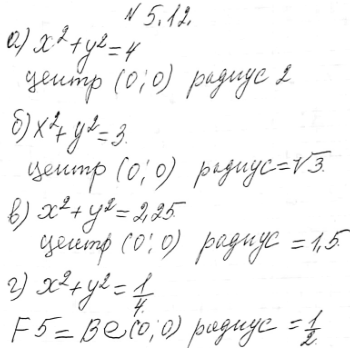 № 5.12.
а) x²+y²=4
центр (0;0) радиус 2
б) x²+y²=3.
центр (0;0) радиус=√3.
в) x²+y²=2,25.
центр (0;0) радиус =1,5.
г) x²+y²=1/4.
F5=Be(0;0) радиус =1/2.